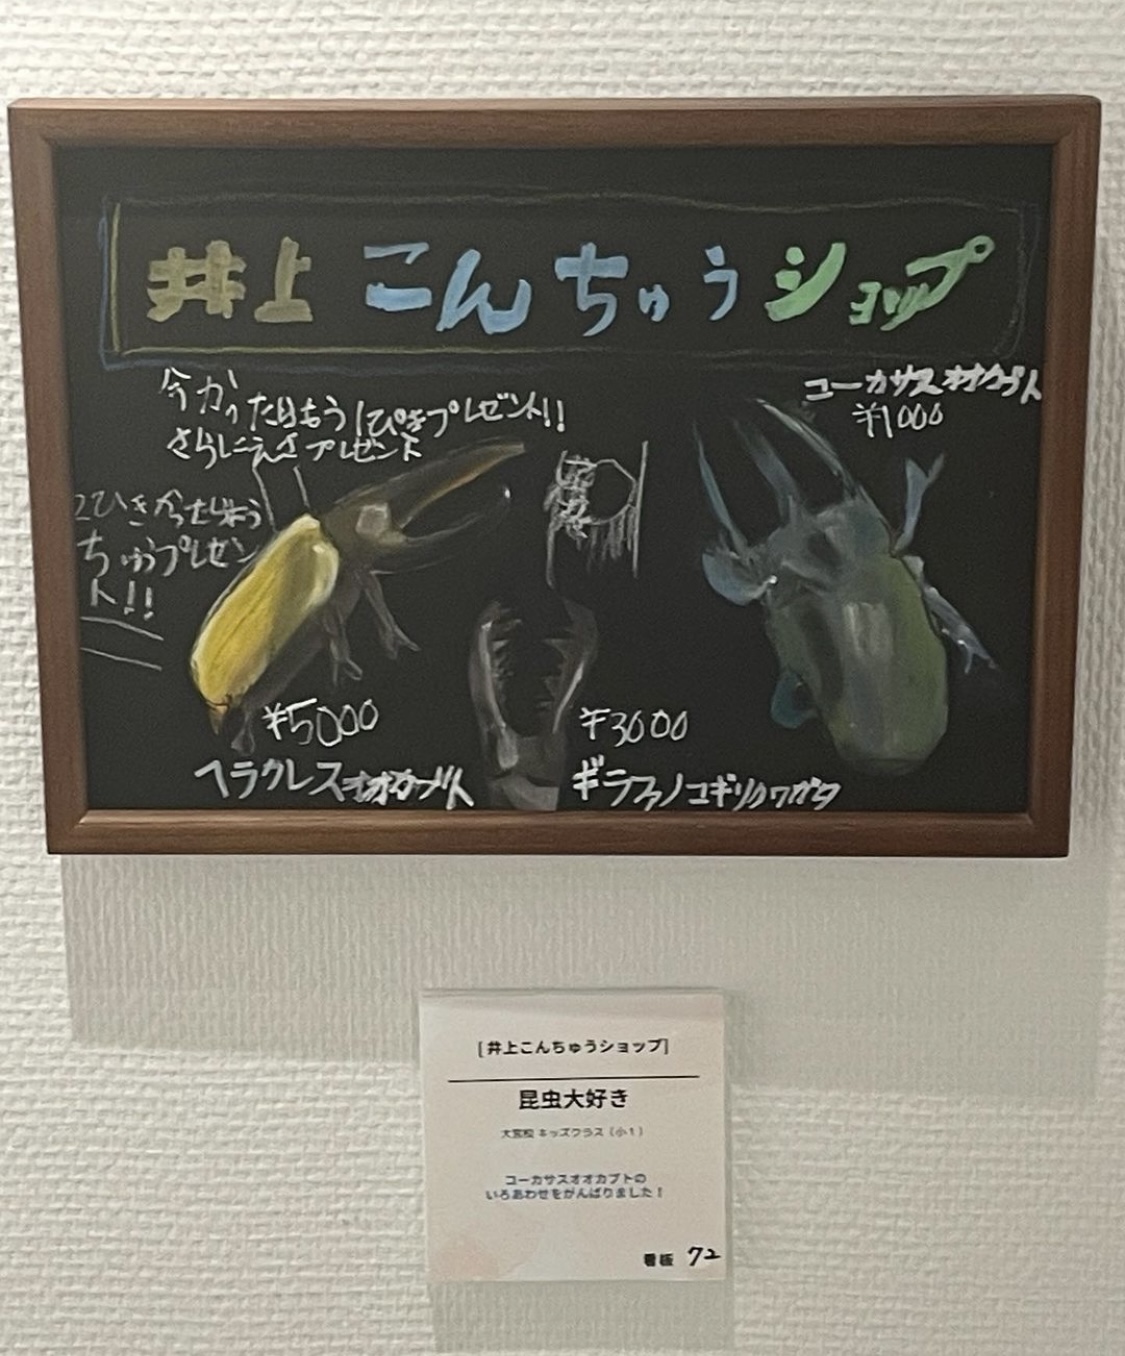 井上 こんちゅうショップ
今かったらもう1ぴきプレゼント!!
さらにえさプレゼント
2ひきかったらよう
ちゅうプレゼン
ト!!
コーカサスオオカブト
¥1000
¥5000
ヘラクレスオオカブト
¥3000
ギラファノコギリクワガタ
[井上こんちゅうショップ]
昆虫大好き
大宮校 キッズクラス(小1)
コーカサスオオカブトの
いろあわせをがんばりました!
看板 72